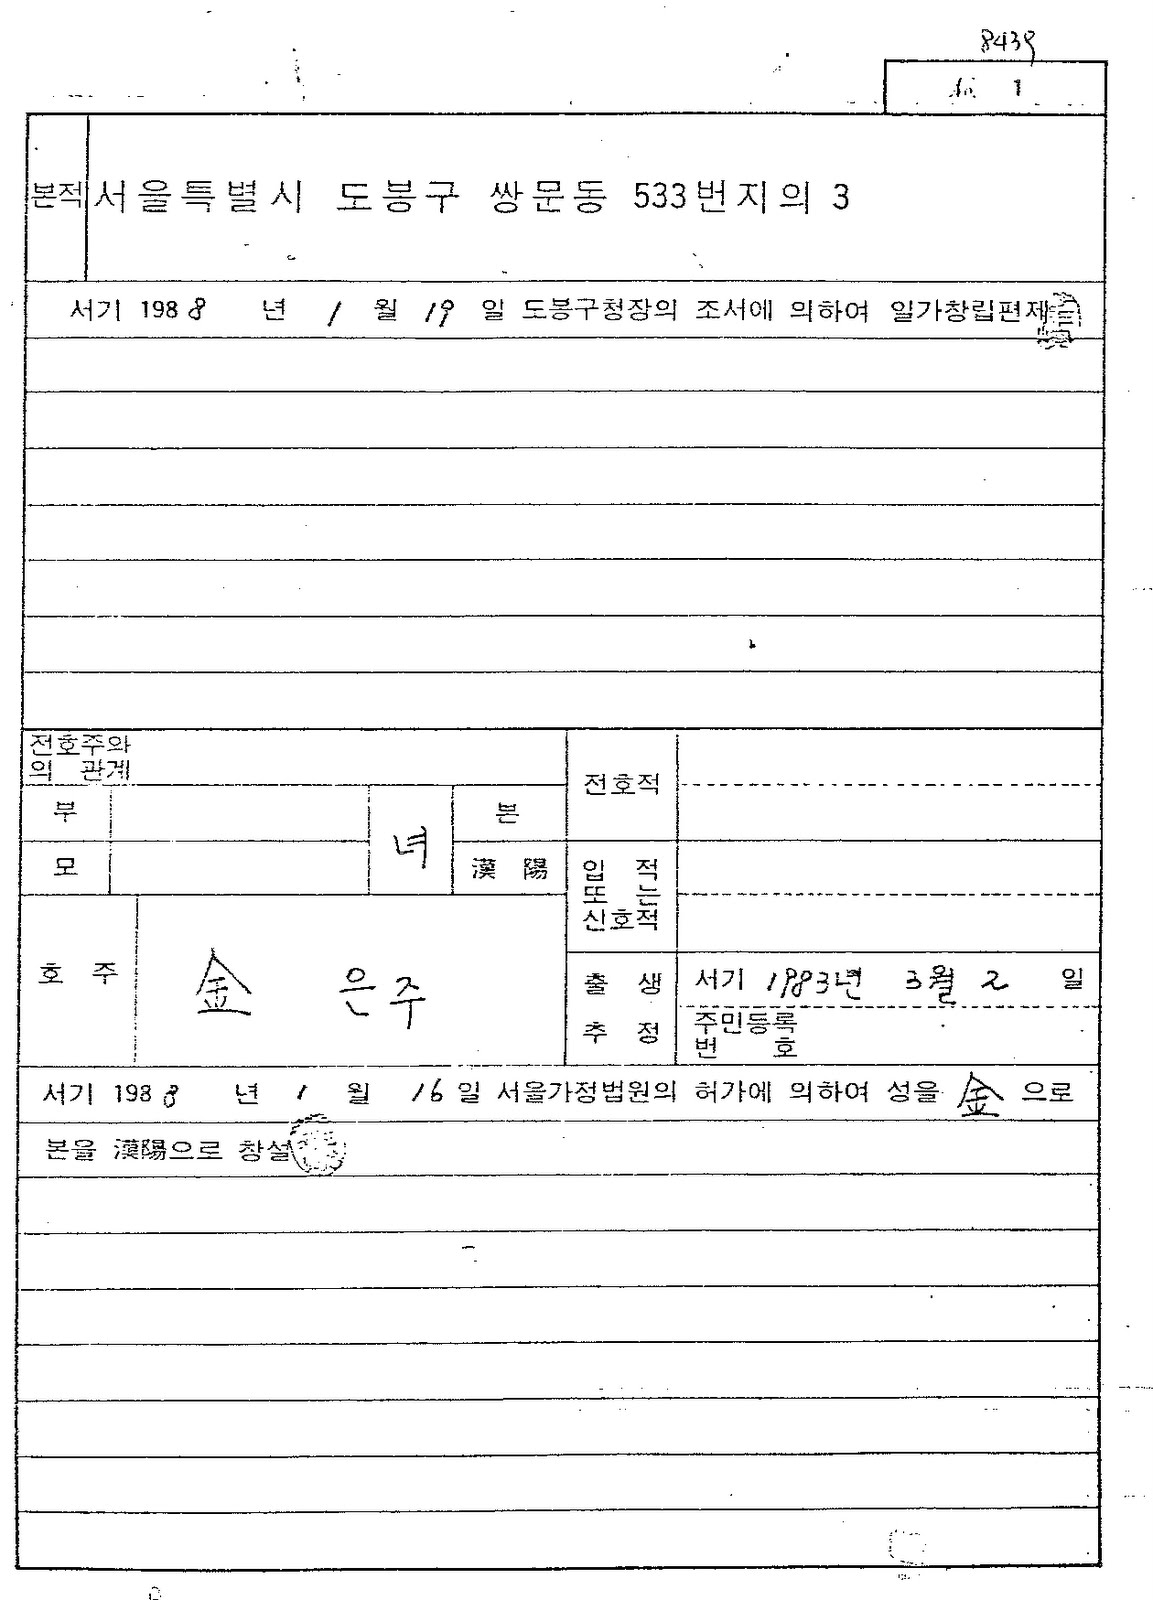 8439
No. 1
본적 서울특별시 도봉구 쌍문동 533번지의 3
서기 1988 년 1 월 19 일 도봉구청장의 조서에 의하여 일가창립편제
전호주와
의 관계
전호적
부
녀
본
모
漢 陽
입 적
또 는
신호적
호 주 金 은주
출 생
추 정
서기 1983년 3월 2 일
주민등록
번 호
서기 1988 년 1 월 16 일 서울가정법원의 허가에 의하여 성을 金 으로
본을 漢陽으로 창설